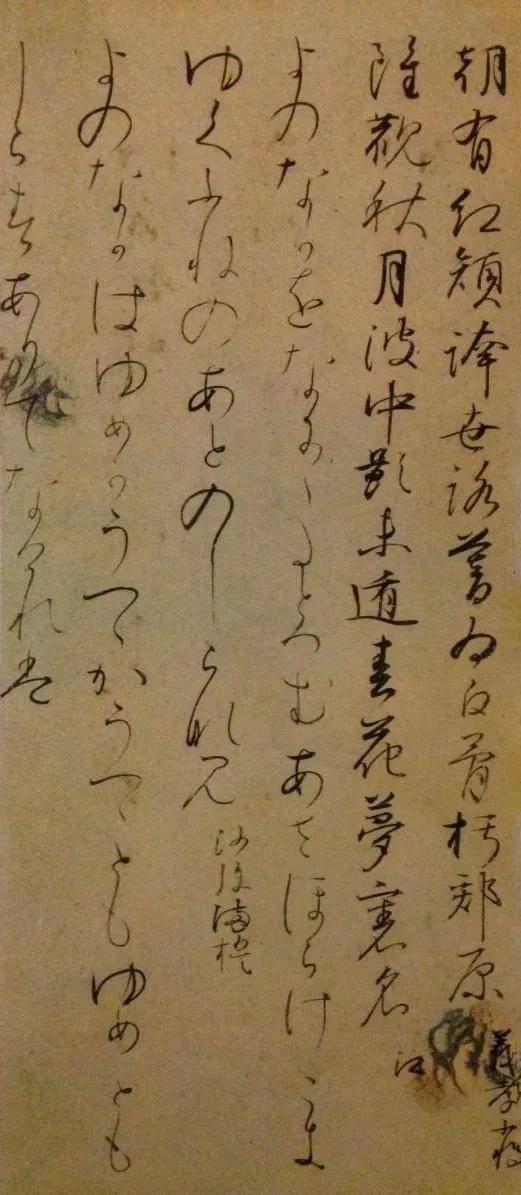 朝有紅顔誇世路暮為白骨朽郊原
義孝少将
雖観秋月波中影未遁春花夢裏名
江
よのなかをなにゝたとへむあさほらけこき
ゆくふねのあとのしらなみ
沙弥満誓
よのなかはゆめかうつゝかうつゝともゆめとも
しらすありてなけれは